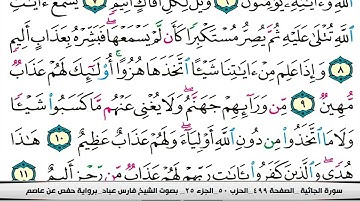 ٱللَّهِ وَءَايَٰتِهِۦ يُؤۡمِنُونَ ٦ وَيۡلٞ لِّكُلِّ أَفَّاكٍ أَثِيمٖ ٧ يَسۡمَعُ ءَايَٰتِ
ٱللَّهِ تُتۡلَىٰ عَلَيۡهِ ثُمَّ يُصِرُّ مُسۡتَكۡبِرٗا كَأَن لَّمۡ يَسۡمَعۡهَاۖ فَبَشِّرۡهُ بِعَذَابٍ أَلِيمٖ
٨ وَإِذَا عَلِمَ مِنۡ ءَايَٰتِنَا شَيۡـًٔا ٱتَّخَذَهَا هُزُوًاۚ أُوْلَٰٓئِكَ لَهُمۡ عَذَابٞ
مُّهِينٞ ٩ مِّن وَرَآئِهِمۡ جَهَنَّمُۖ وَلَا يُغۡنِي عَنۡهُم مَّا كَسَبُواْ شَيۡـٔٗا
وَلَا مَا ٱتَّخَذُواْ مِن دُونِ ٱللَّهِ أَوۡلِيَآءَۖ وَلَهُمۡ عَذَابٌ عَظِيمٌ ١٠ هَٰذَا
هُدٗىۖ وَٱلَّذِينَ كَفَرُواْ بِـَٔايَٰتِ رَبِّهِمۡ لَهُمۡ عَذَابٞ مِّن رِّجۡزٍ أَلِيمٌ ١١
سورة الجاثية _ الصفحة ٤٩٩ _ الحزب ٥٠ _ الجزء ٢٥ _ بصوت الشيخ فارس عباد _ برواية حفص عن عاصم